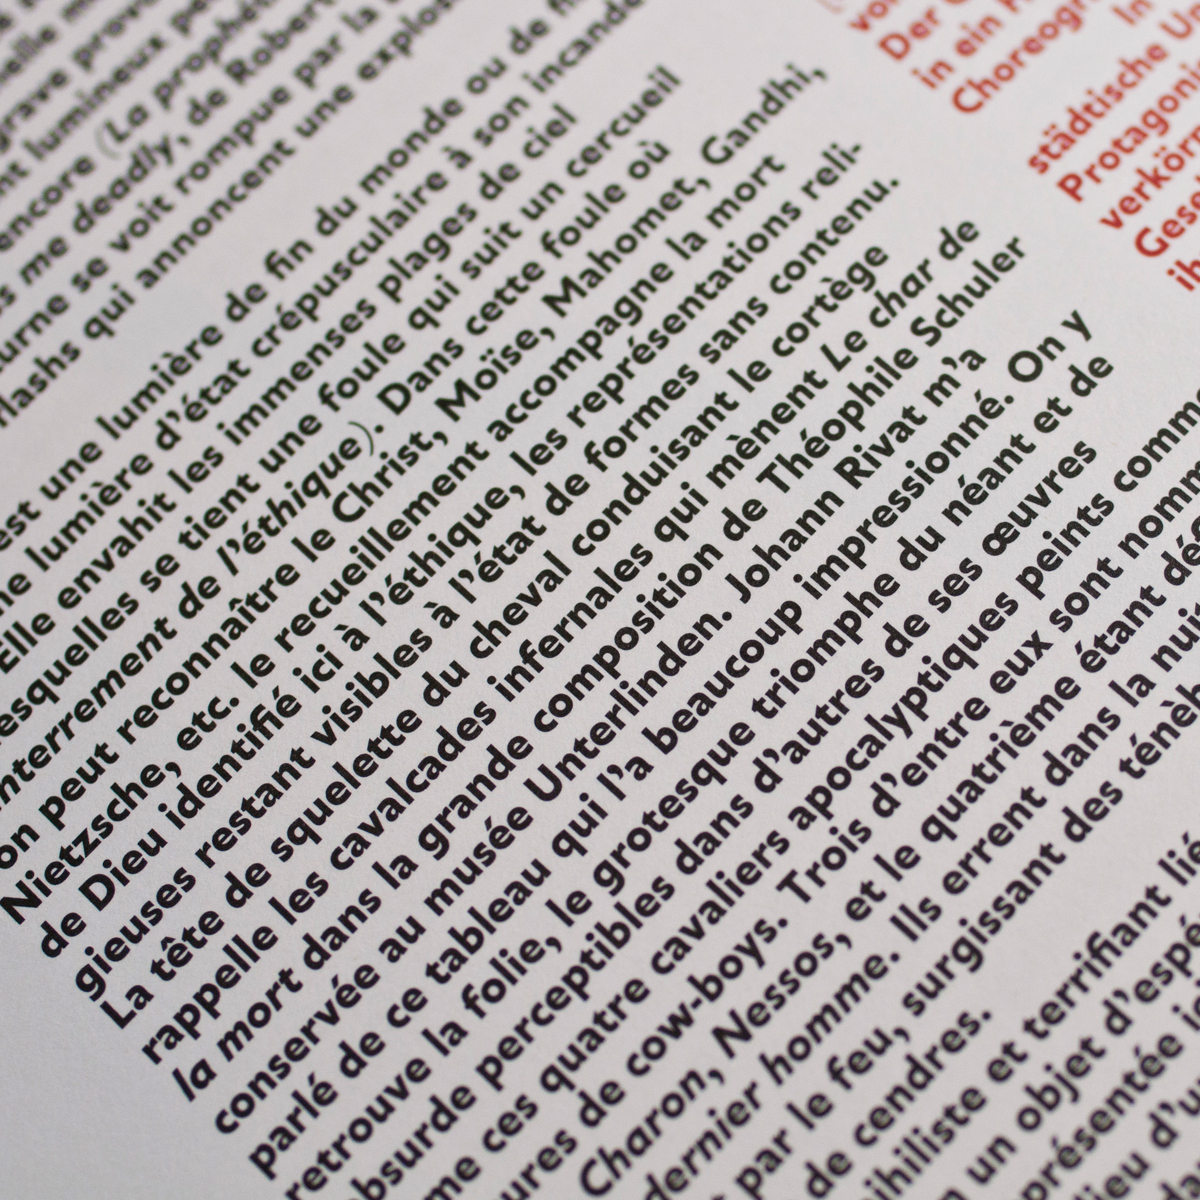 grave provo
nt lumineux pe
encore (La prophé
s me deadly, de Robert
urne se voit rompue par la
flashs qui annoncent une explos
est une lumière de fin du monde ou de
ne lumière d'état crépusculaire à son incande
Elle envahit les immenses plages de ciel
esquelles se tient une foule qui suit un cercueil
nterrement de l'éthique). Dans cette foule où
on peut reconnaître le Christ, Moïse, Mahomet, Gandhi,
Nietzsche, etc. le recueillement accompagne la mort
de Dieu identifié ici à l'éthique, les représentations reli-
gieuses restant visibles à l'état de formes sans contenu.
La tête de squelette du cheval conduisant le cortège
rappelle les cavalcades infernales qui mènent Le char de
la mort dans la grande composition de Théophile Schuler
conservée au musée Unterlinden. Johann Rivat m'a
parlé de ce tableau qui l'a beaucoup impressionné. On y
retrouve la folie, le grotesque triomphe du néant et de
absurde perceptibles dans d'autres de ses œuvres
me ces quatre cavaliers apocalyptiques peints comm
ures de cow-boys. Trois d'entre eux sont nomm
Charon, Nessos, et le quatrième étant dé
dernier homme. Ils errent dans la nui
par le feu, surgissant des ténèb
de cendres.
ihiliste et terrifiant lié
un objet d'espé
présentée i
ieu d'u
vor
Der
in ein
Choreogr
In
städtische U
Protagonis
verkör
Gesc
ih